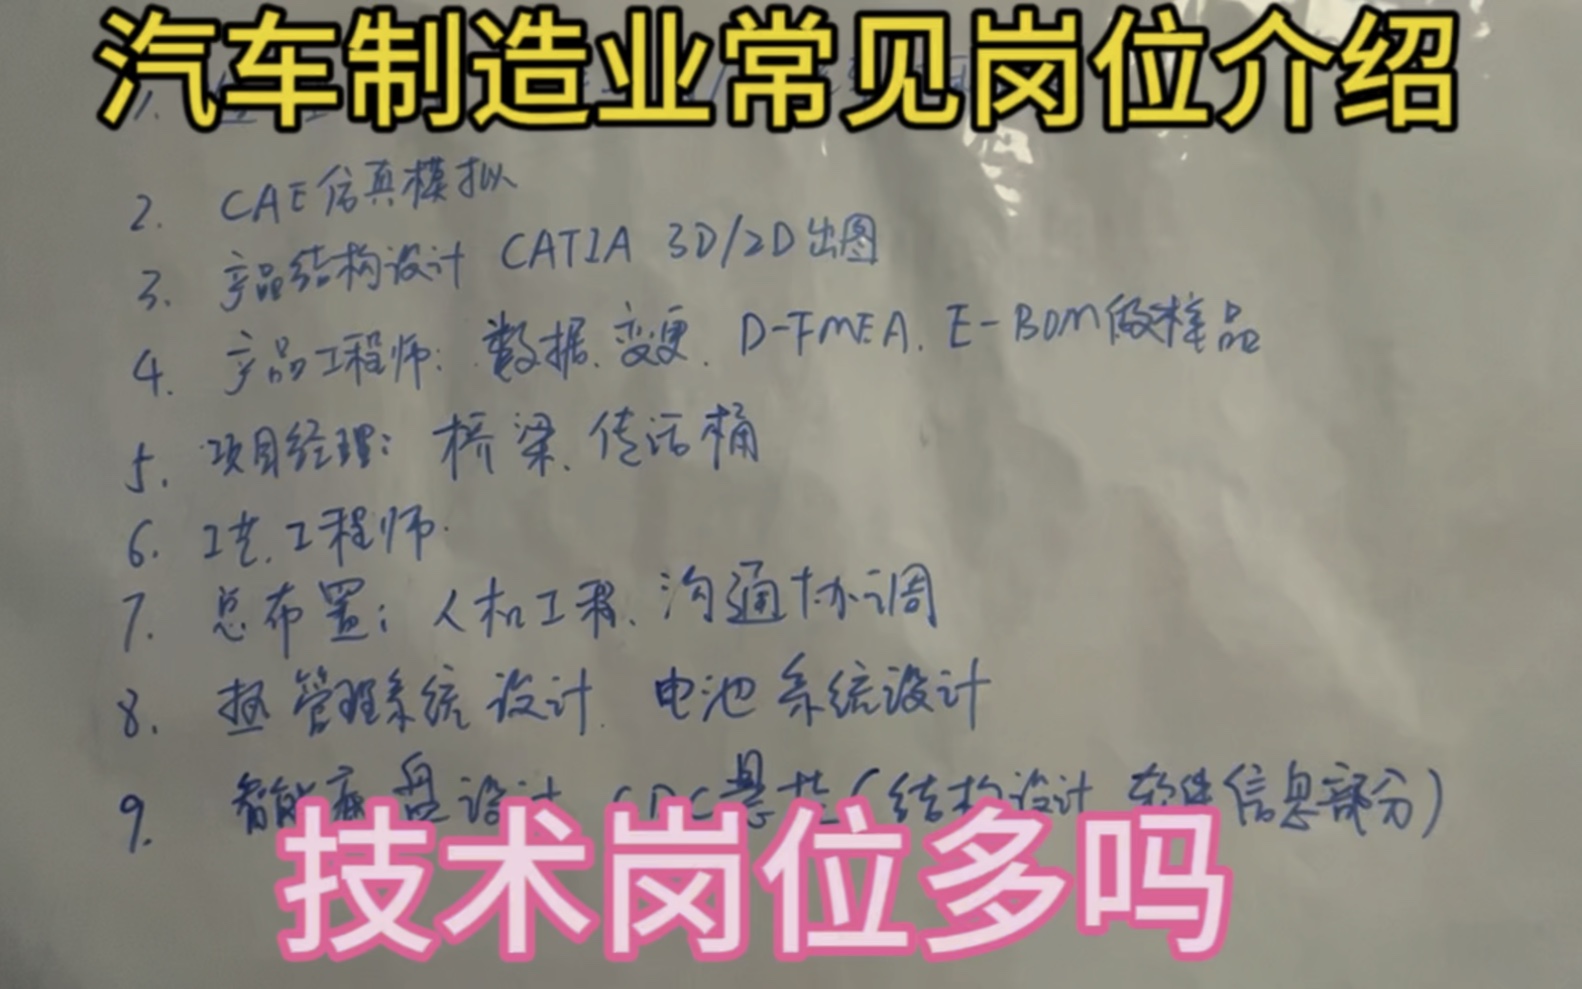 汽车制造业常见岗位介绍
1.
2. CAE仿真模拟
3. 产品结构设计 CATIA 3D/2D出图
4. 产品工程师: 数据、变更、D-FMEA、E-BOM做样品
5. 项目经理: 桥梁、传话桶
6. 工艺工程师.
7. 总布置: 人机工程、沟通协调
8. 热管理系统设计. 电池系统设计
9. 智能底盘设计 CDC悬架(结构设计 软件信息部分)
技术岗位多吗